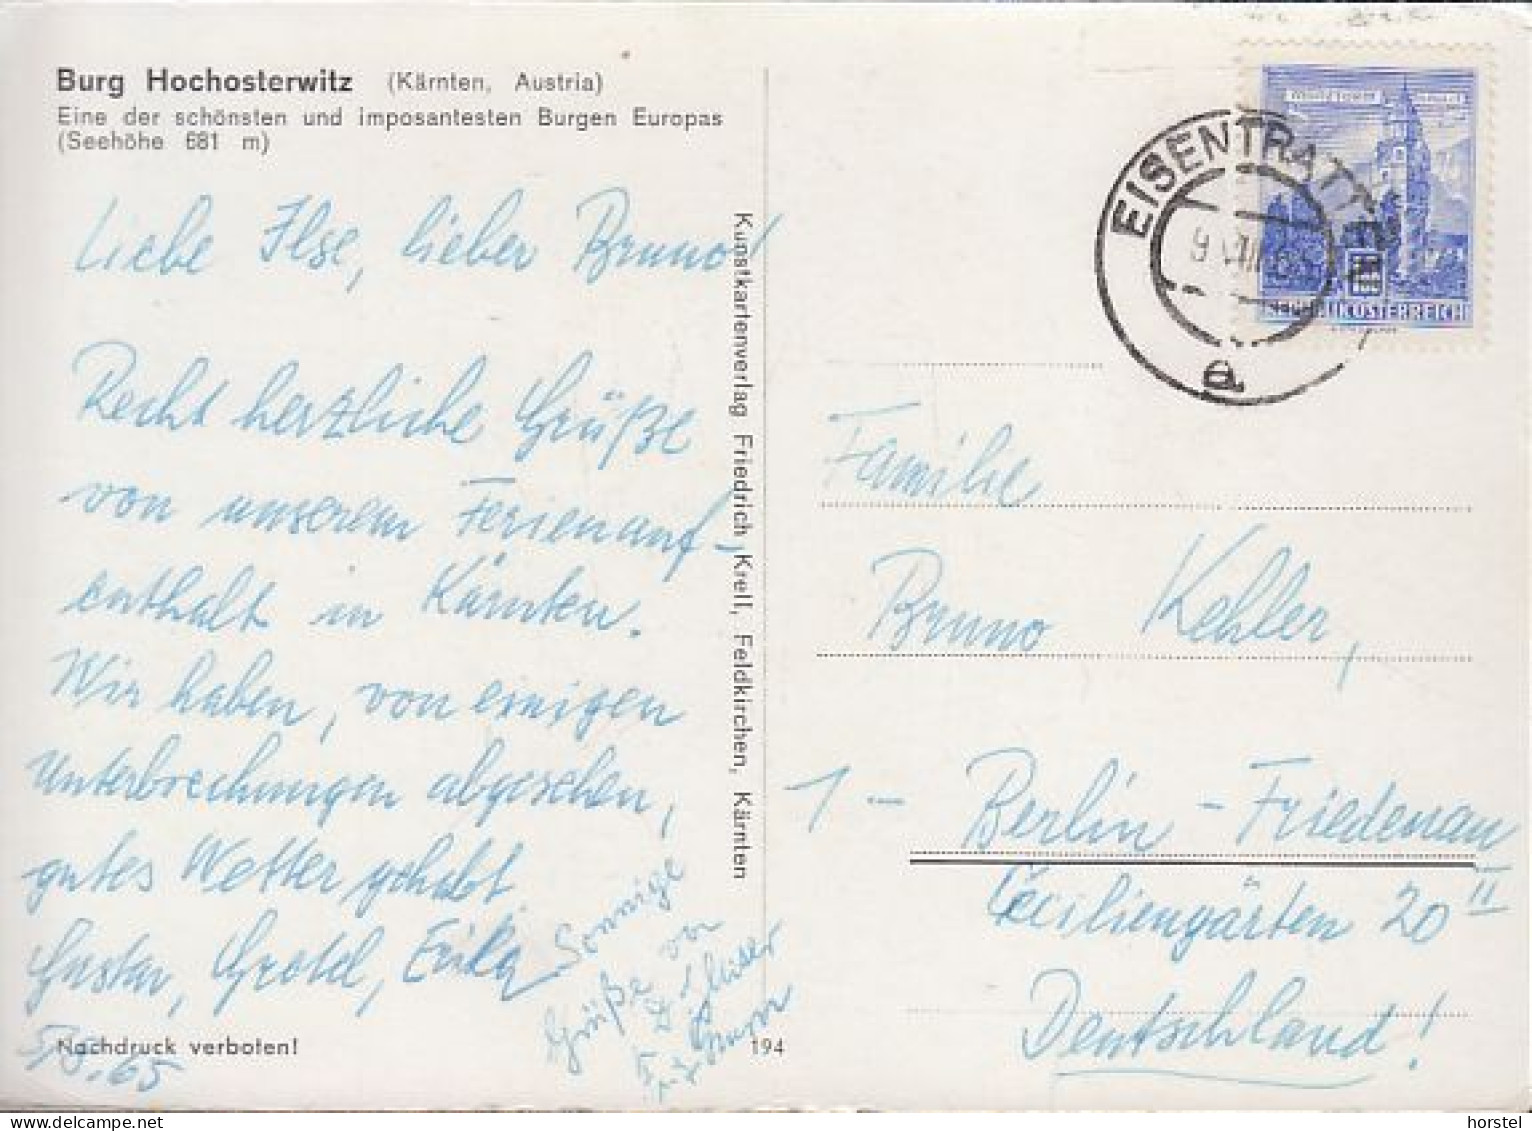 Burg Hochosterwitz (Kärnten, Austria)
Eine der schönsten und imposantesten Burgen Europas
(Seehöhe 681 m)
Liebe Ilse, lieber Bruno!
Recht herzliche Grüße
von unserem Ferienauf-
enthalt in Kärnten.
Wir haben, von einigen
Unterbrechungen abgesehen,
gutes Wetter gehabt
Gustav, Gretel, Erika
Sonnige
Grüße von
65
Nachdruck verboten!
194
Kunstkartenverlag Friedrich Krell, Feldkirchen, Kärnten
EISENTRATTEN
9.VIII.65
a
REPUBLIK ÖSTERREICH
Familie
Bruno Kehler,
1 - Berlin - Friedenau
Ceciliengärten 20 II
Deutschland!
horstel